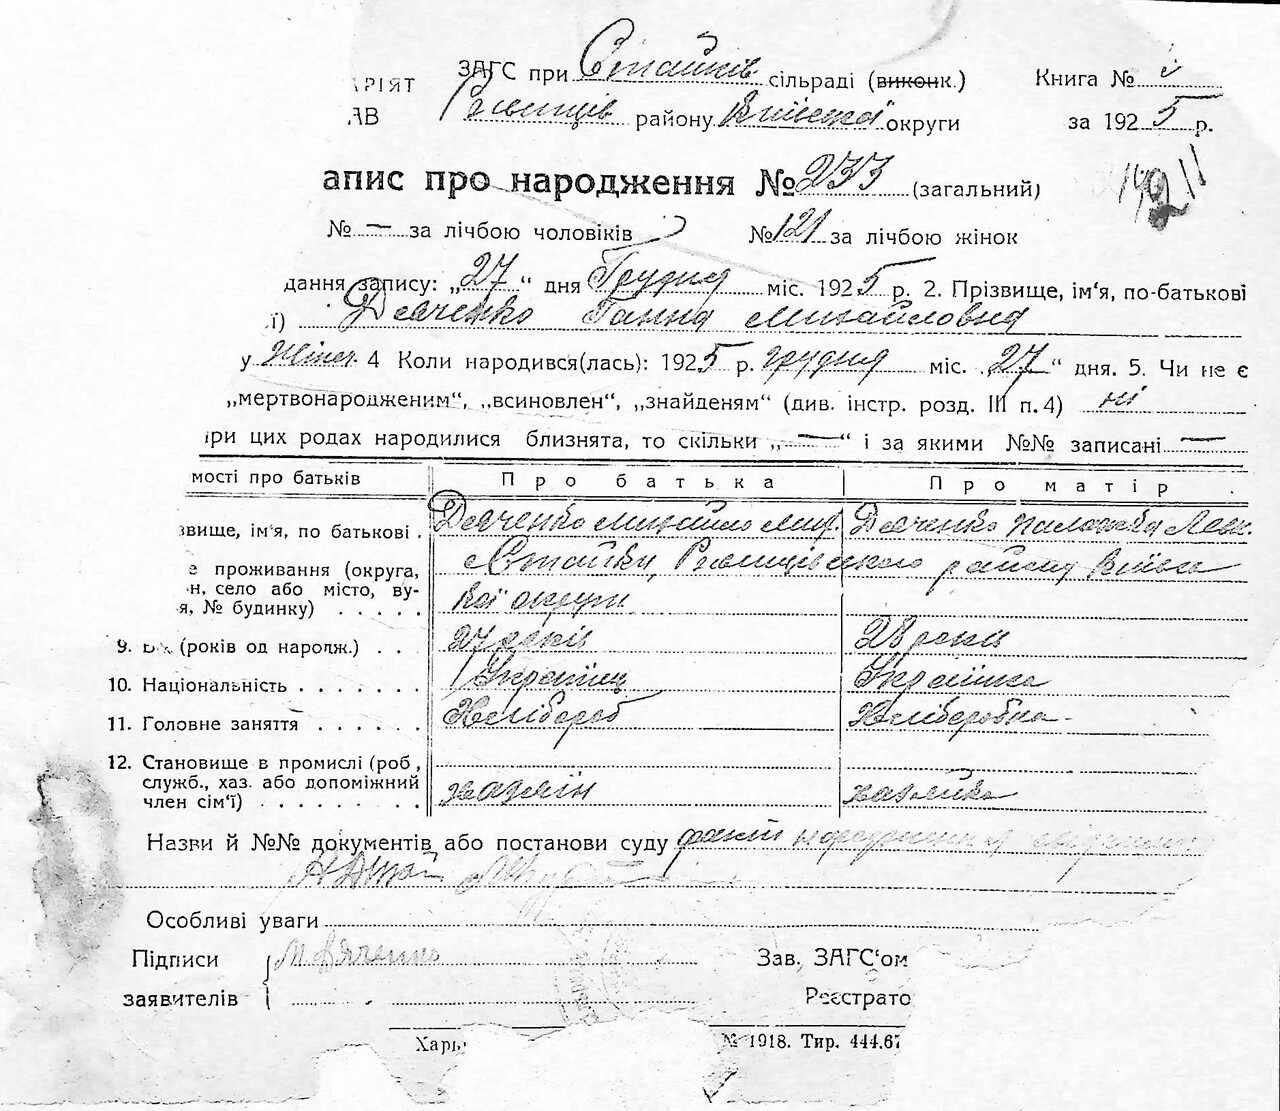 ЗАГС при Стайків сільраді (виконк.) Книга №
РІЯТ
АВ Ржищів району Київської округи за 1925 р.
апис про народження № 233 (загальний)
№ — за лічбою чоловіків № 121 за лічбою жінок
дання запису: „27“ дня Грудня міс. 1925 р. 2. Прізвище, ім'я, по-батькові
ї) Дяченко Ганна Михайловна
у Жіноч. 4 Коли народився(лась): 1925 р. грудня міс. „27“ дня. 5. Чи не є
„мертвонародженим“, „всиновлен“, „знайденям“ (див. інстр. розд. III п. 4) ні
ри цих родах народилися близнята, то скільки „—“ і за якими №№ записані —
мості про батьків Про батька Про матір
звище, ім'я, по батькові . Дяченко Михайло Мир. Дяченко Палажка
е проживання (округа, Стайки, Ржищівського району Київсь
н, село або місто, ву-
я, № будинку) . . . . . кої округи
9. (років од народж.) . . 27 років 28 роки
10. Національність . . . . . . . Українець Українка
11. Головне заняття . . . . . . Хлібороб Хліборобка
12. Становище в промислі (роб,
служб., хаз. або допоміжний
член сім'ї) . . . . . . . . хазяїн хазяйка
Назви й №№ документів або постанови суду факт народження
Особливі уваги
Підписи М Дяченко Зав. ЗАГС'ом
заявителів Реєстрато
Харь № 1918. Тир. 444.67